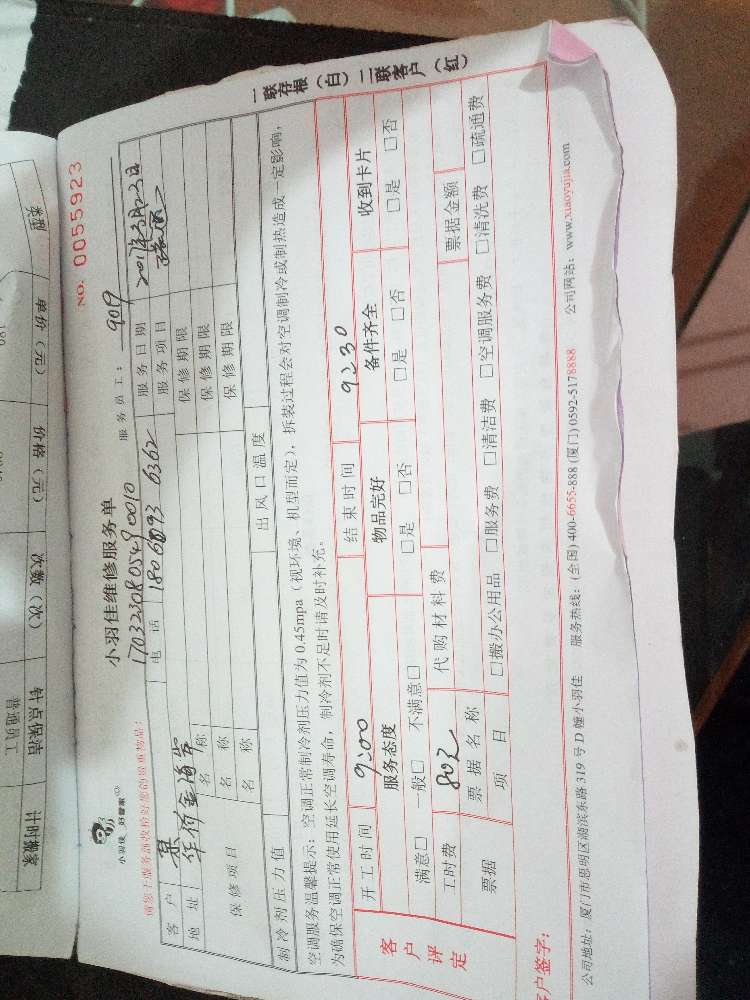 NO. 0055923
小羽佳维修服务单
小羽佳 好管家
1703230805490010
服务员工： 909
请您于服务前收拾好您的贵重物品：
客户
电话 180 6093 6362
服务日期 2017年3月23日
地址
服务项目
保修项目
名称
保修期限
名称
保修期限
名称
保修期限
制冷剂压力值
出风口温度
空调服务温馨提示：空调正常制冷剂压力值为 0.45mpa（视环境、机型而定），拆装过程会对空调制冷或制热造成一定影响，
为确保空调正常使用延长空调寿命，制冷剂不足时请及时补充。
客户评定
开工时间 9:00
结束时间 9:30
服务态度
物品完好
备件齐全
收到卡片
满意□ 一般□ 不满意□
□是 □否
□是 □否
□是 □否
工时费 80元
代购材料费
票据
票据名称
票据金额
项目
□搬办公用品 □服务费 □清洁费 □空调服务费 □清洗费 □疏通费
客户签字：
公司地址：厦门市思明区湖滨东路 319 号 D 幢小羽佳 服务热线：(全国) 400-6655-888 (厦门) 0592-5178888 公司网站：www.xiaoyujia.com
一联存根（白）二联客户（红）
类型
单价（元）
价格（元）
次数（次）
钟点保洁
普通员工
计时搬家